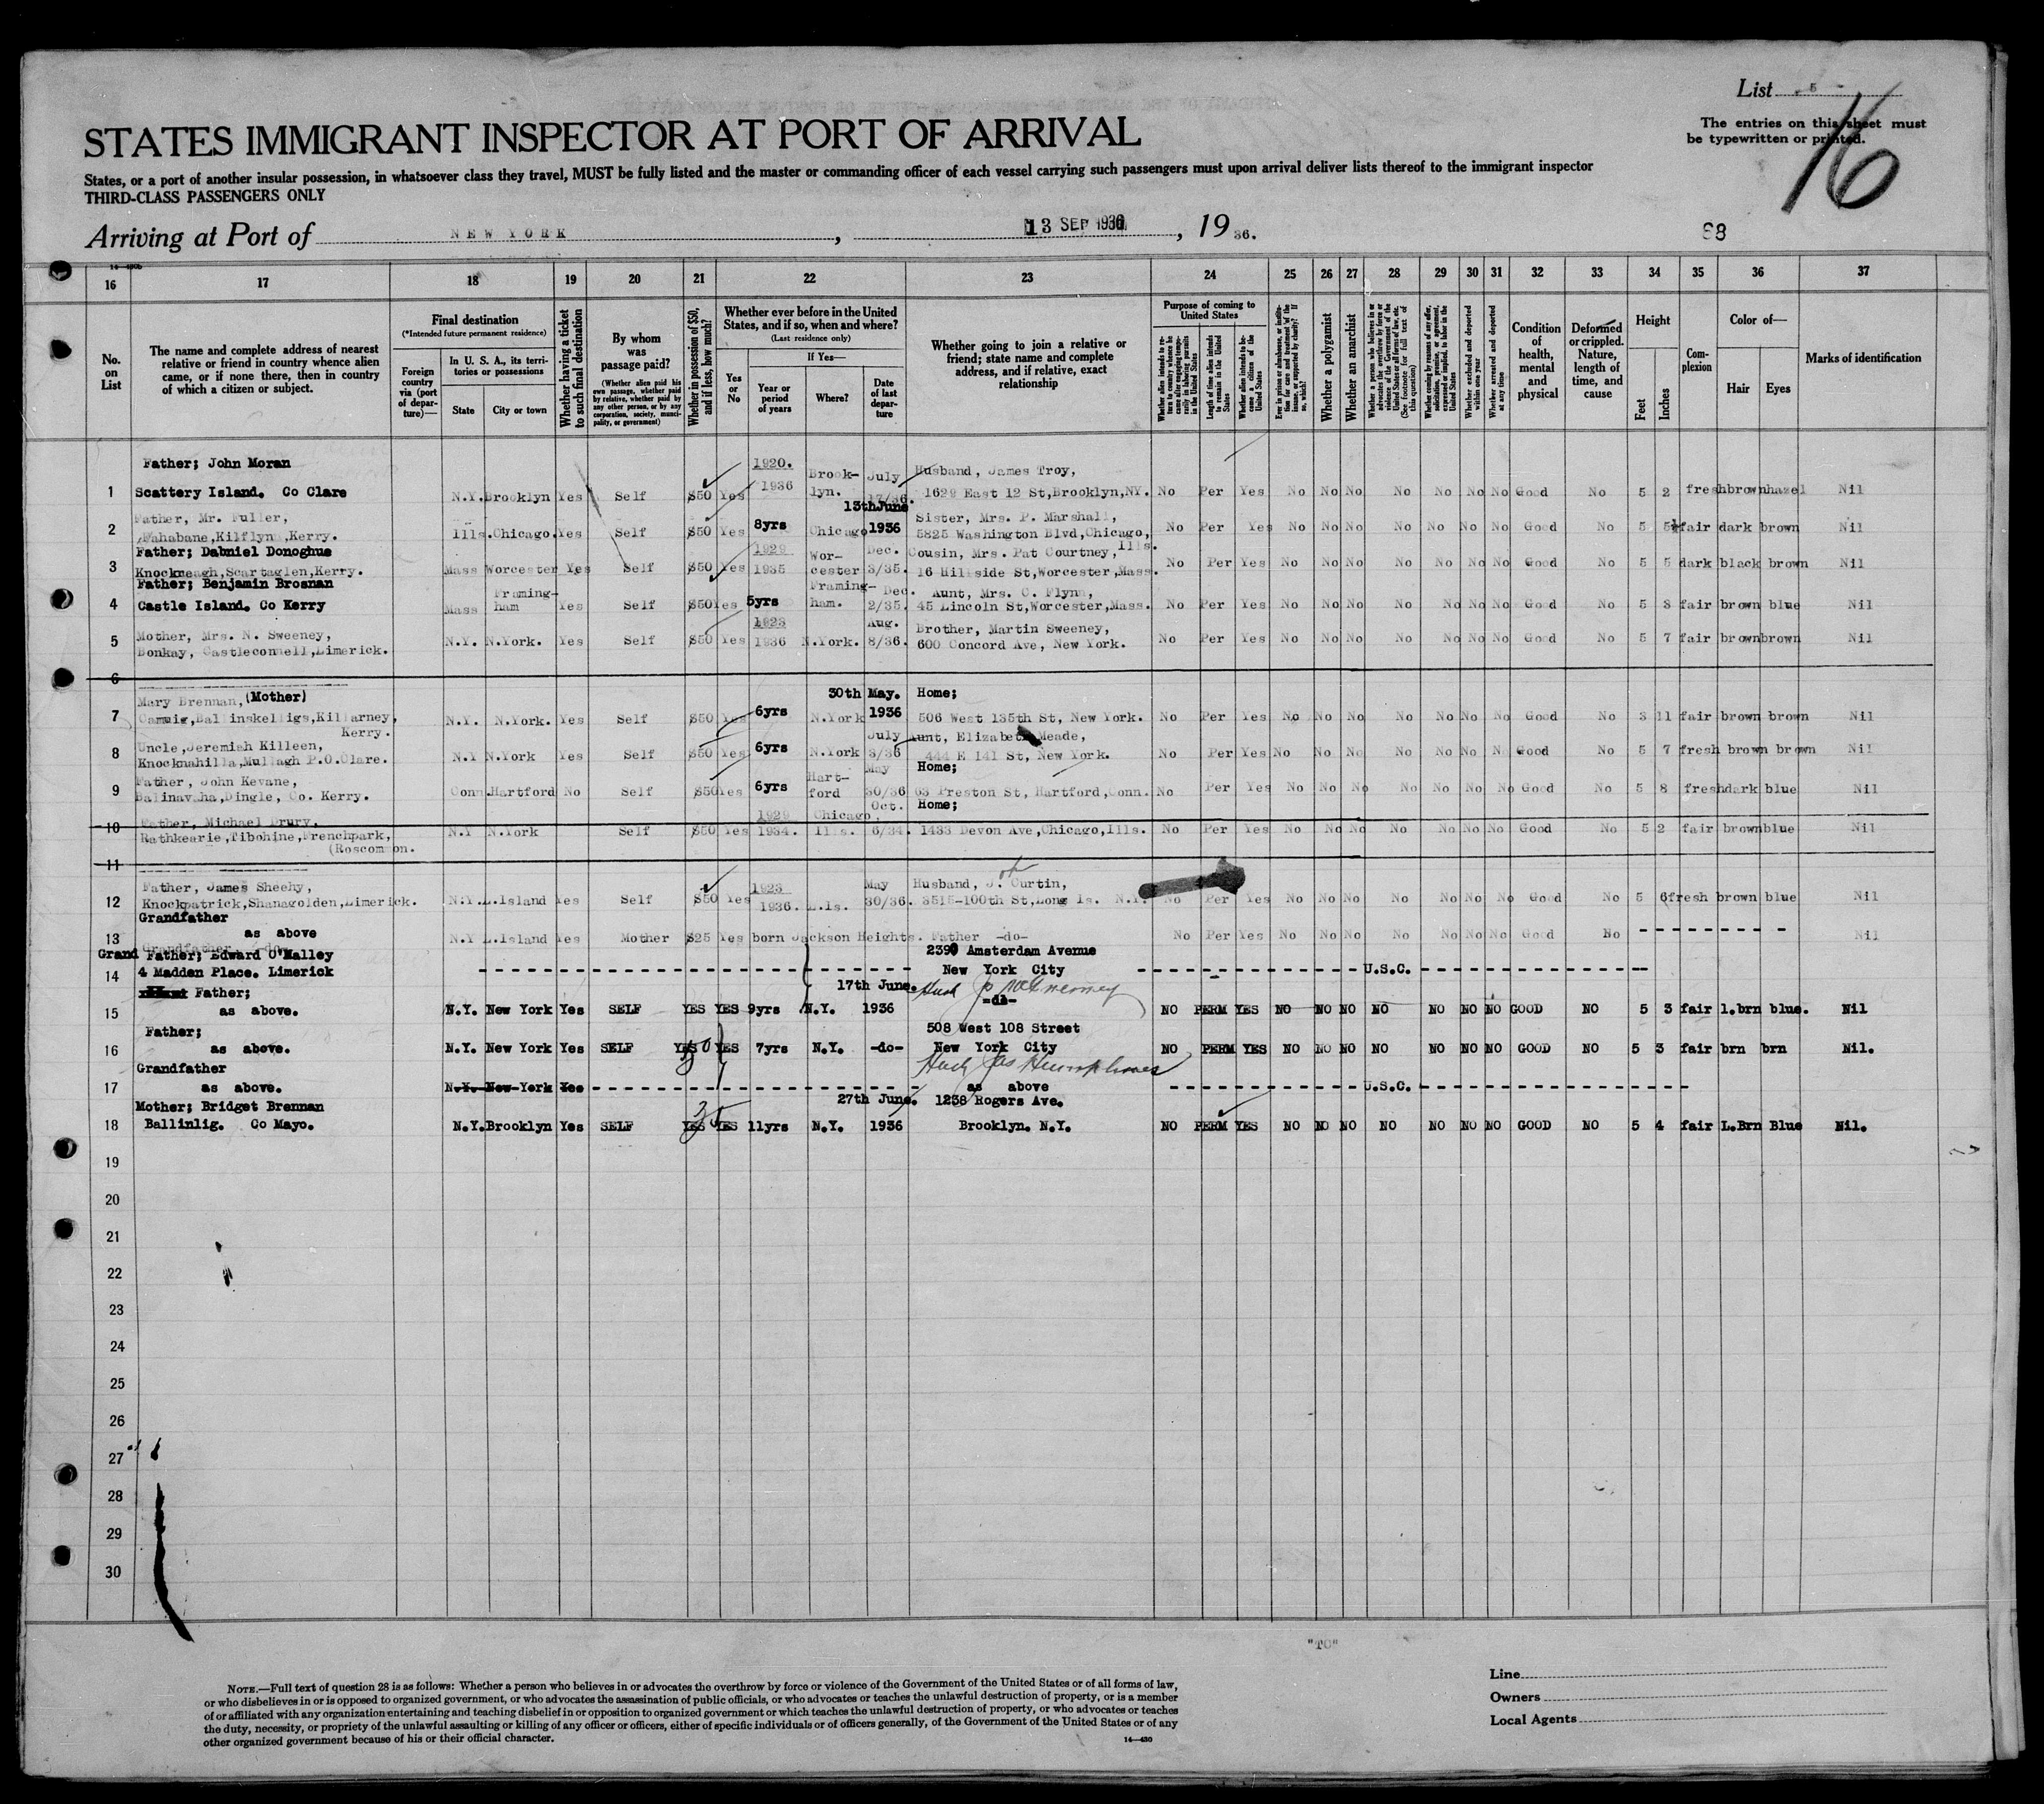 List 5
The entries on this sheet must
be typewritten or printed.
16
STATES IMMIGRANT INSPECTOR AT PORT OF ARRIVAL
States, or a port of another insular possession, in whatsoever class they travel, MUST be fully listed and the master or commanding officer of each vessel carrying such passengers must upon arrival deliver lists thereof to the immigrant inspector
THIRD-CLASS PASSENGERS ONLY
Arriving at Port of NEW YORK, 13 SEP 1936, 19 36.
68
16 17 18 19 20 21 22 23 24 25 26 27 28 29 30 31 32 33 34 35 36 37
No. on List
The name and complete address of nearest relative or friend in country whence alien came, or if none there, then in country of which a citizen or subject.
Final destination
(*Intended future permanent residence)
Foreign country via (port of departure)—
In U. S. A., its territories or possessions
State
City or town
Whether having a ticket to such final destination
By whom was passage paid?
(Whether alien paid his own passage, whether paid by relative, whether paid by any other person, or by any corporation, society, municipality, or government)
Whether in possession of $50, and if less, how much?
Whether ever before in the United States, and if so, when and where?
(Last residence only)
Yes or No
If Yes—
Year or period of years
Where?
Date of last departure
Whether going to join a relative or friend; state name and complete address, and if relative, exact relationship
Purpose of coming to United States
Length of time alien intends to remain in the United States
Whether alien intends to become a citizen of the United States
Whether a polygamist
Whether an anarchist
Whether excluded and deported within one year
Whether arrested and deported at any time
Condition of health, mental and physical
Deformed or crippled. Nature, length of time, and cause
Height
Feet
Inches
Complexion
Color of—
Hair
Eyes
Marks of identification
Father; John Moran 1920. Brook- July Husband, James Troy,
1 Scattery Island. Co Clare N.Y. Brooklyn Yes Self $50 Yes 1936 lyn. 17/36. 1629 East 12 St,Brooklyn,NY. No Per Yes No No No No No No No Good No 5 2 fresh brown hazel Nil
Father, Mr. Fuller, 13th June Sister, Mrs. P. Marshall,
2 Fahabane,Kilflynn,Kerry. Ills. Chicago. Yes Self $50 Yes 8yrs Chicago 1936 5825 Washington Blvd,Chicago, Ills. No Per Yes No No No No No No No Good No 5 5½ fair dark brown Nil
Father; Dabniel Donoghue 1929 Wor- Dec. Cousin, Mrs. Pat Courtney,
3 Knockneagh,Scartaglen,Kerry. Mass Worcester Yes Self $50 Yes 1935 cester 3/35. 16 Hillside St,Worcester,Mass. No Per Yes No No No No No No No Good No 5 5 dark black brown Nil
Father; Benjamin Brosnan Framing- Framing- Dec. Aunt, Mrs. C. Flynn,
4 Castle Island. Co Kerry Mass ham Yes Self $50 Yes 5yrs ham. 2/35. 45 Lincoln St,Worcester,Mass. No Per Yes No No No No No No No Good No 5 8 fair brown blue Nil
Mother, Mrs. N. Sweeney, 1923 Aug. Brother, Martin Sweeney,
5 Donkay, Castleconnell,Limerick. N.Y. N.York. Yes Self $50 Yes 1936 N.York. 8/36. 600 Concord Ave, New York. No Per Yes No No No No No No No Good No 5 7 fair brown brown Nil
6
Mary Brennan, (Mother) 30th May. Home;
7 Ballinskelligs,Killarney, Kerry. N.Y. N.York. Yes Self $50 Yes 6yrs N.York 1936 506 West 135th St, New York. No Per Yes No No No No No No No Good No 3 11 fair brown brown Nil
Uncle,Jeremiah Killeen, July Aunt, Elizabeth Meade,
8 Knocknahilla,Mullagh P.O.Clare. N.Y N.York Yes Self $50 Yes 6yrs N.York 3/36 444 E 141 St, New York. No Per Yes No No No No No No No Good No 5 7 fresh brown brown Nil
Father, John Kevane, Hart- May Home;
9 Balinavaha,Dingle, Co. Kerry. Conn. Hartford No Self $50 Yes 6yrs ford 30/36 63 Preston St, Hartford,Conn. No Per Yes No No No No No No No Good No 5 8 fresh dark blue Nil
Father, Michael Drury, 1929 Chicago, Oct. Home;
10 Rathkearie,Tibohine,Frenchpark, (Roscommon. N.Y N.York Self $50 Yes 1934. Ills. 6/34. 1433 Devon Ave,Chicago,Ills. No Per Yes No No No No No No No Good No 5 2 fair brown blue Nil
11
Father, James Sheehy, 1923 May Husband, J. Curtin,
12 Knockpatrick,Shanagolden,Limerick. N.Y. L.Island Yes Self $50 Yes 1936. L.Is. 30/36. 3515-100th St,Long Is. N.Y. No Per Yes No No No No No No No Good No 5 6 fresh brown blue Nil
Grandfather
13 as above N.Y L.Island Yes Mother $25 Yes born Jackson Heights. Father -do- No Per Yes No No No No No No No Good No Nil
Grandfather, -do-
Grand Father; Edward O'Malley 2390 Amsterdam Avenue
14 4 Madden Place. Limerick New York City U.S.C.
Father; 17th June.
15 as above. N.Y. New York Yes SELF YES YES 9yrs N.Y. 1936 -do- NO PERM YES NO NO NO NO NO NO NO GOOD NO 5 3 fair l.brn blue. Nil
Father; 508 West 108 Street
16 as above. N.Y. New York Yes SELF YES 50 YES 7yrs N.Y. -do- New York City NO PERM YES NO NO NO NO NO NO NO GOOD NO 5 3 fair brn brn Nil.
Grandfather
17 as above. N.Y. New York Yes as above U.S.C.
Mother; Bridget Brennan 27th June. 1238 Rogers Ave.
18 Ballinlig. Co Mayo. N.Y. Brooklyn Yes SELF YES 35 YES 11yrs N.Y. 1936 Brooklyn. N.Y. NO PERM YES NO NO NO NO NO NO NO GOOD NO 5 4 fair L.Brn Blue Nil.
19
20
21
22
23
24
25
26
27
28
29
30
"TO"
NOTE.—Full text of question 28 is as follows: Whether a person who believes in or advocates the overthrow by force or violence of the Government of the United States or of all forms of law,
or who disbelieves in or is opposed to organized government, or who advocates the assassination of public officials, or who advocates or teaches the unlawful destruction of property, or is a member
of or affiliated with any organization entertaining and teaching disbelief in or opposition to organized government or which teaches the unlawful destruction of property, or who advocates or teaches
the duty, necessity, or propriety of the unlawful assaulting or killing of any officer or officers, either of specific individuals or of officers generally, of the Government of the United States or of any
other organized government because of his or their official character.
14—430
Line
Owners
Local Agents